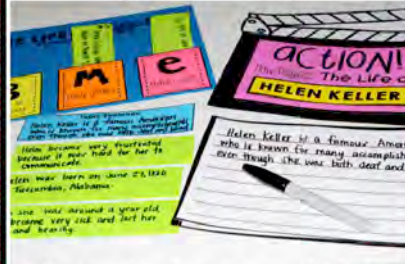 B
M
e
ACTION!
The Life
HELEN KELLER
Helen Keller is a famous American
who is known for many accomplishments
even though she was
Helen became very frustrated
because it was hard for her to
communicate.
Helen was born on June 27, 1880
Tuscumbia, Alabama.
she was around a year old,
became very sick and lost her
and hearing.
Helen Keller is a famous Amer
who is known for many accomplish
even though she was both deaf and